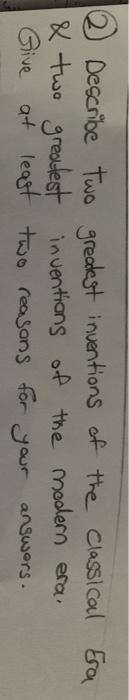 ② Describe two greatest inventions of the classical Era
& two greatest inventions of the modern era.
Give at least two reasons for your answers.